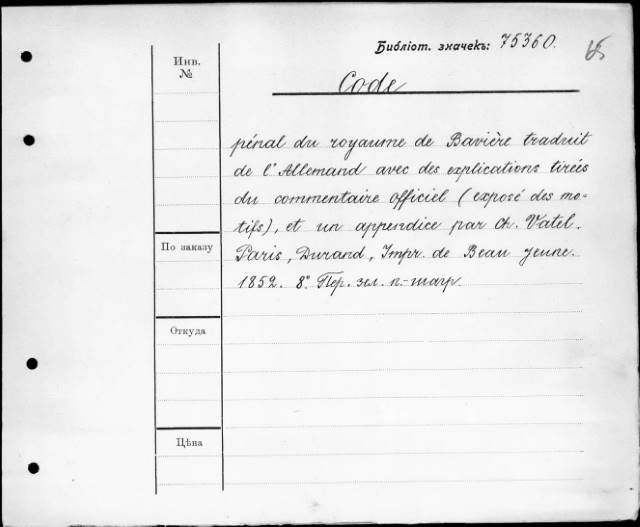 Библіот. значекъ: 75360.
Инв.
№
Code
pénal du royaume de Bavière traduit
de l'Allemand avec des explications tirées
du commentaire officiel (exposé des mo-
tifs), et un appendice par Ch. Vatel.
По заказу
Paris, Durand, Impr. de Beau jeune.
1852. 8° Пер. зел. п.-шагр.
Откуда
Цѣна